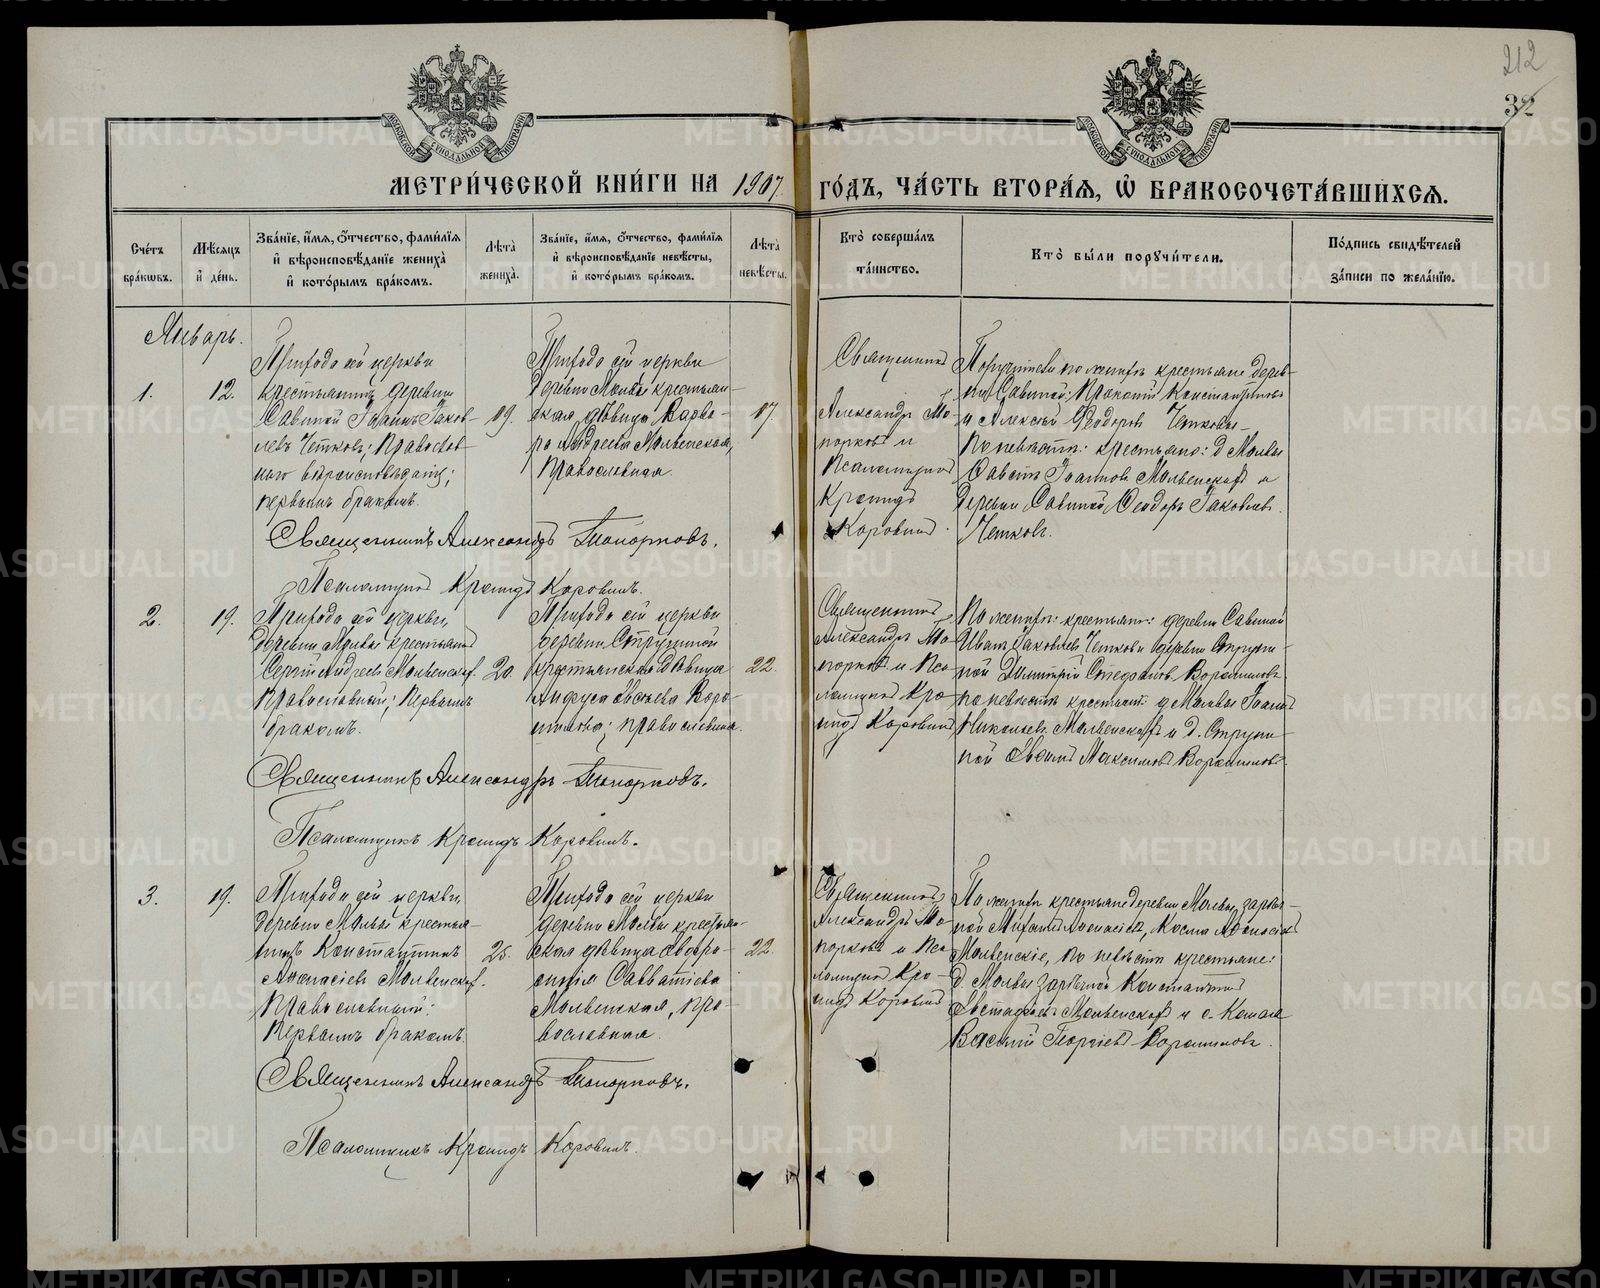 212
32
МЕТРИ́ЧЕСКОЙ КНИ́ГИ НА 1907 ГО́ДЪ, ЧА́СТЬ ВТОРА́Я, Ѽ БРАКОСОЧЕТА́ВШИХСЯ.
Сче́тъ бра́кѡвъ.
Мѣ́сяцъ и҆ де́нь.
Зва́нїе, и҆́мя, ѻ҆́тчество, фами́лїя и҆ вѣроисповѣ́данїе жениха̀ и҆ кото́рымъ бра́комъ.
Лѣ́та жениха̀.
Зва́нїе, и҆́мя, ѻ҆́тчество, фами́лїя и҆ вѣроисповѣ́данїе невѣ́сты, и҆ кото́рымъ бра́комъ.
Лѣ́та невѣ́сты.
Кто̀ соверша́лъ та́инство.
Кто̀ бы́ли порꙋчи́тели.
По́дпись свидѣ́телей за́писи по жела́нїю.
Январь.
1.
12.
Прихода сей церкви
крестьянинъ деревни
Савиной Іоаннъ Іаков-
левъ Четковъ; Православ-
наго вѣроисповѣданія;
первымъ бракомъ.
19.
Прихода сей церкви
деревни Мольвы крестьян-
ская дѣвица Варва-
ра Андреева Мольвенская,
Православная.
17.
Священникъ
Александръ То-
порковъ и
Псаломщикъ
Кронидъ
Коровинъ.
Поручители по женихѣ крестьяне дерев-
ни Савиной: Прокопій Константиновъ
и Алексѣй Ѳеодоровъ Четковы
По невѣстѣ: крестьяне: д. Мольвы
Савватій Іоанновъ Мольвенскій и
деревни Савиной Ѳеодоръ Іаковлевъ
Четковъ.
Священникъ Александръ Топорковъ.
Псаломщикъ Кронидъ Коровинъ.
2.
19.
Прихода сей церкви,
деревни Мольвы крестьянинъ
Сергій Андреевъ Мольвенскій.
Православный; Первымъ
бракомъ.
20.
Прихода сей церкви
деревни Струниной
крестьянская дѣвица
Анфуса Евсеева Воро-
шилова; православная.
22.
Священникъ
Александръ То-
порковъ и Пса-
ломщикъ Кро-
нидъ Коровинъ
По женихѣ: крестьяне: деревни Савиной
Иванъ Іаковлевъ Четковъ и деревни Струни-
ной Димитрій Стефановъ Ворошиловъ.
по невѣстѣ крестьяне: д. Мольвы Іоаннъ
Николаевъ Мольвенскій и д. Струни-
ной Максимовъ Ворошиловъ
Священникъ Александръ Топорковъ.
Псаломщикъ Кронидъ Коровинъ.
3.
19.
Прихода сей церкви,
деревни Мольвы крестья-
нинъ Константинъ
Аѳанасіевъ Мольвенскій.
Православный:
Первымъ бракомъ.
25.
Прихода сей церкви
деревни Мольвы крестьян-
ская дѣвица Евфро-
синія Савватіева
Мольвенская, Пра-
вославная.
22.
Священникъ
Александръ То-
порковъ и Пса-
ломщикъ Кро-
нидъ Коровинъ
По женихѣ крестьяне деревни Мольвы зарѣч-
ной Аѳанасіевъ, Косма Аѳанасіевъ
Мольвенскіе, по невѣстѣ крестьяне:
д. Мольвы зарѣчной Константинъ
Евстафіевъ Мольвенскій и с.
Василій Георгіевъ Ворошиловъ.
Священникъ Александръ Топорковъ.
Псаломщикъ Кронидъ Коровинъ.
METRIKI.GASO-URAL.RU